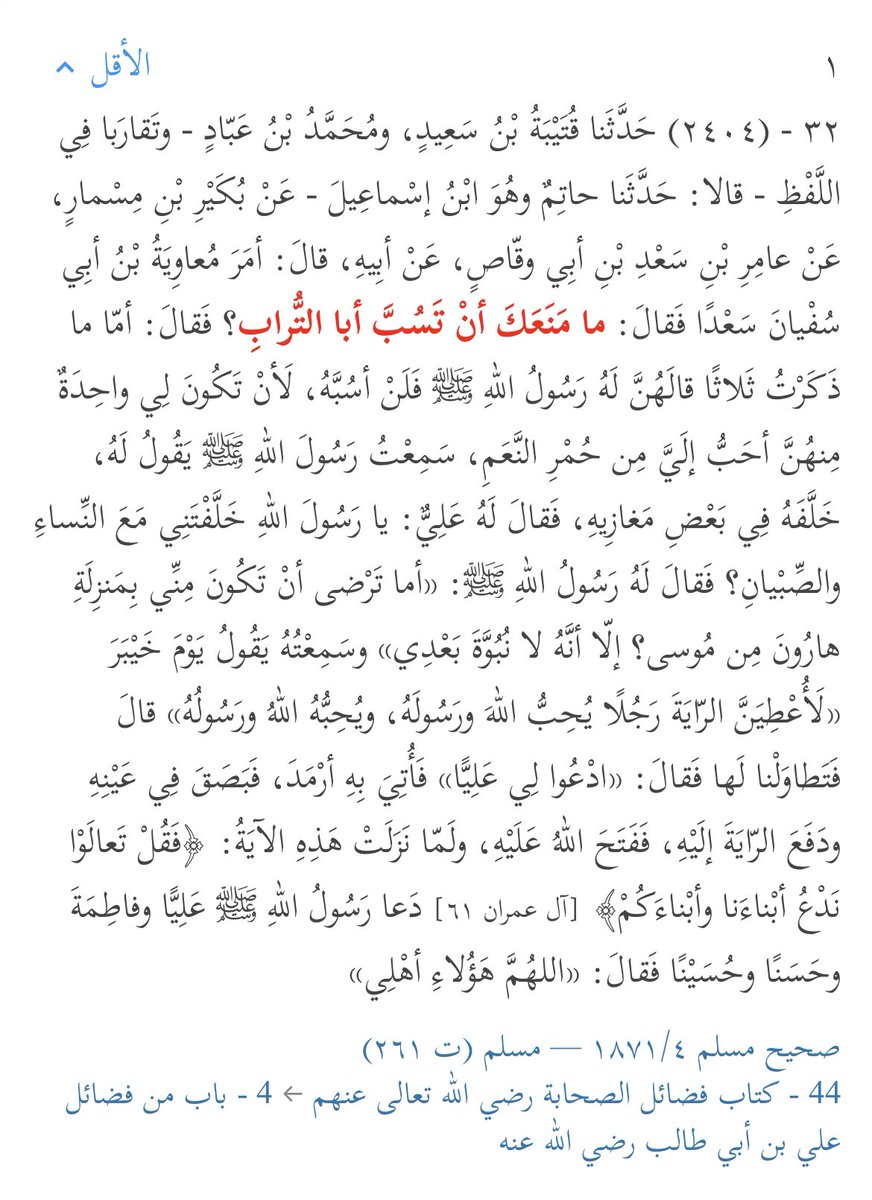 ١
الأقل
٣٢ - (٢٤٠٤) حَدَّثَنا قُتَيْبَةُ بْنُ سَعِيدٍ، ومُحَمَّدُ بْنُ عَبّادٍ - وتَقارَبا فِي
اللَّفْظِ - قالا: حَدَّثَنا حاتِمٌ وهُوَ ابْنُ إسْماعِيلَ - عَنْ بُكَيْرِ بْنِ مِسْمارٍ،
عَنْ عامِرِ بْنِ سَعْدِ بْنِ أبِي وقّاصٍ، عَنْ أبِيهِ، قالَ: أمَرَ مُعاوِيَةُ بْنُ أبِي
سُفْيانَ سَعْدًا فَقالَ: ما مَنَعَكَ أنْ تَسُبَّ أبا التُّرابِ؟ فَقالَ: أمّا ما
ذَكَرْتُ ثَلاثًا قالَهُنَّ لَهُ رَسُولُ اللهِ ﷺ فَلَنْ أسُبَّهُ، لَأنْ تَكُونَ لِي واحِدَةٌ
مِنهُنَّ أحَبُّ إلَيَّ مِن حُمْرِ النَّعَمِ، سَمِعْتُ رَسُولَ اللهِ ﷺ يَقُولُ لَهُ،
خَلَّفَهُ فِي بَعْضِ مَغازِيهِ، فَقالَ لَهُ عَلِيٌّ: يا رَسُولَ اللهِ خَلَّفْتَنِي مَعَ النِّساءِ
والصِّبْيانِ؟ فَقالَ لَهُ رَسُولُ اللهِ ﷺ: «أما تَرْضى أنْ تَكُونَ مِنِّي بِمَنزِلَةِ
هارُونَ مِن مُوسى؟ إلّا أنَّهُ لا نُبُوَّةَ بَعْدِي» وسَمِعْتُهُ يَقُولُ يَوْمَ خَيْبَرَ
«لَأُعْطِيَنَّ الرّايَةَ رَجُلًا يُحِبُّ اللهَ ورَسُولَهُ، ويُحِبُّهُ اللهُ ورَسُولُهُ» قالَ
فَتَطاوَلْنا لَها فَقالَ: «ادْعُوا لِي عَلِيًّا» فَأُتِيَ بِهِ أرْمَدَ، فَبَصَقَ فِي عَيْنِهِ
ودَفَعَ الرّايَةَ إلَيْهِ، فَفَتَحَ اللهُ عَلَيْهِ، ولَمّا نَزَلَتْ هَذِهِ الآيَةُ: ﴿فَقُلْ تَعالَوْا
نَدْعُ أبْناءَنا وأبْناءَكُمْ﴾ [آل عمران ٦١] دَعا رَسُولُ اللهِ ﷺ عَلِيًّا وفاطِمَةَ
وحَسَنًا وحُسَيْنًا فَقالَ: «اللهُمَّ هَؤُلاءِ أهْلِي»
صحيح مسلم ٤/١٨٧١ — مسلم (ت ٢٦١)
44 - كتاب فضائل الصحابة رضي الله تعالى عنهم ← 4 - باب من فضائل
علي بن أبي طالب رضي الله عنه